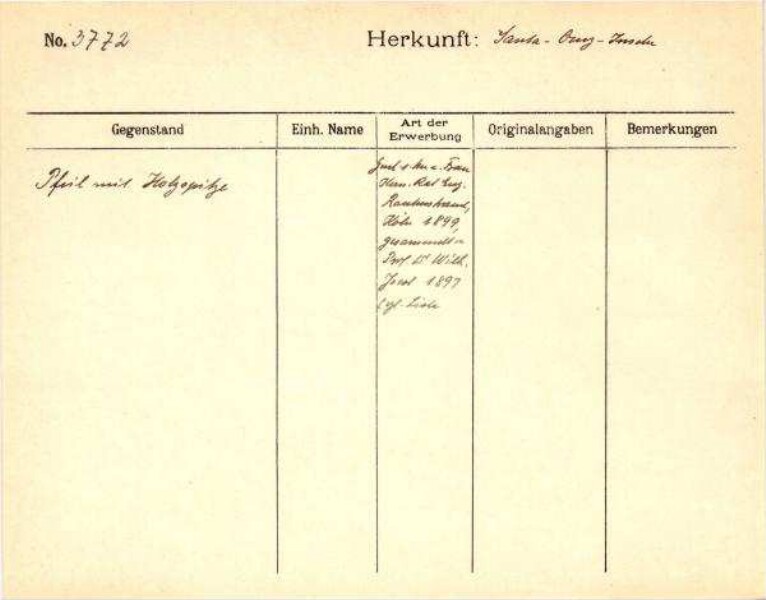 No. 3772 Herkunft: Santa-Cruz-Inseln
Gegenstand Einh. Name Art der Erwerbung Originalangaben Bemerkungen
Pfeil mit Holzspitze
Frau
Rat Eug.
Rautenstrauch,
Köln 1899,
gesammelt v.
Prof Dr Wilh.
Joest 1897
vgl. Liste